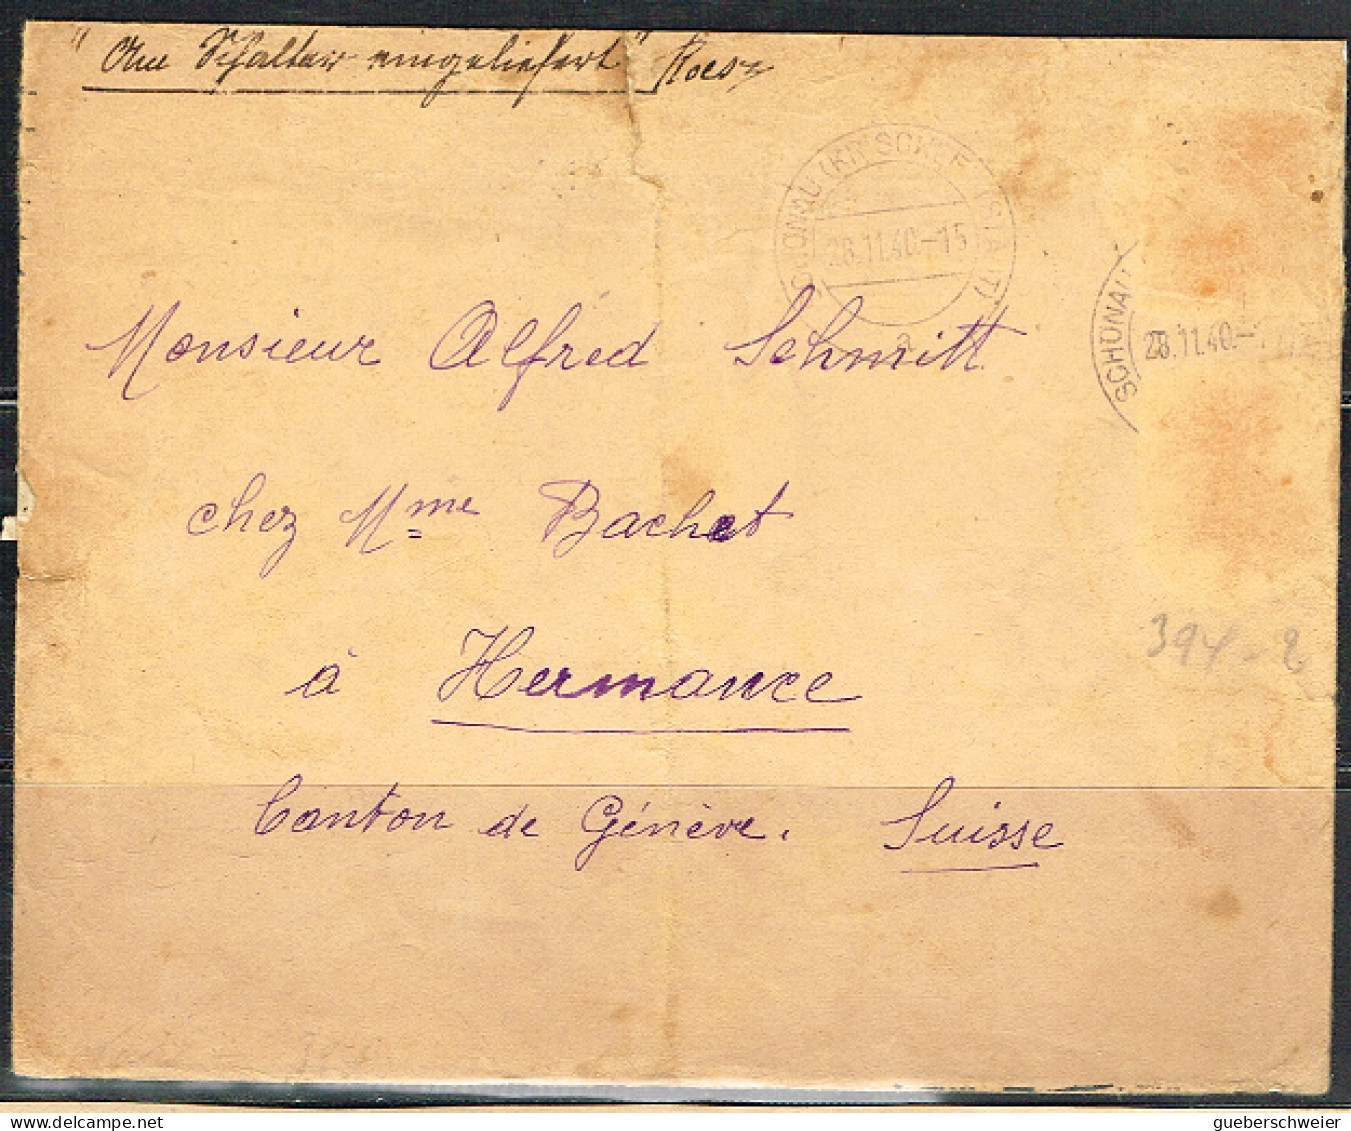 "Am Schalter eingeliefert"
SCHÖNAU (KR SCHLETTSTADT)
28.11.40.-15
a
SCHÖNAU
28.11.40.-1
Monsieur Alfred Schmitt
chez Mme Bachet
à Hermance
394-2
Canton de Génève. Suisse
gueberschweier